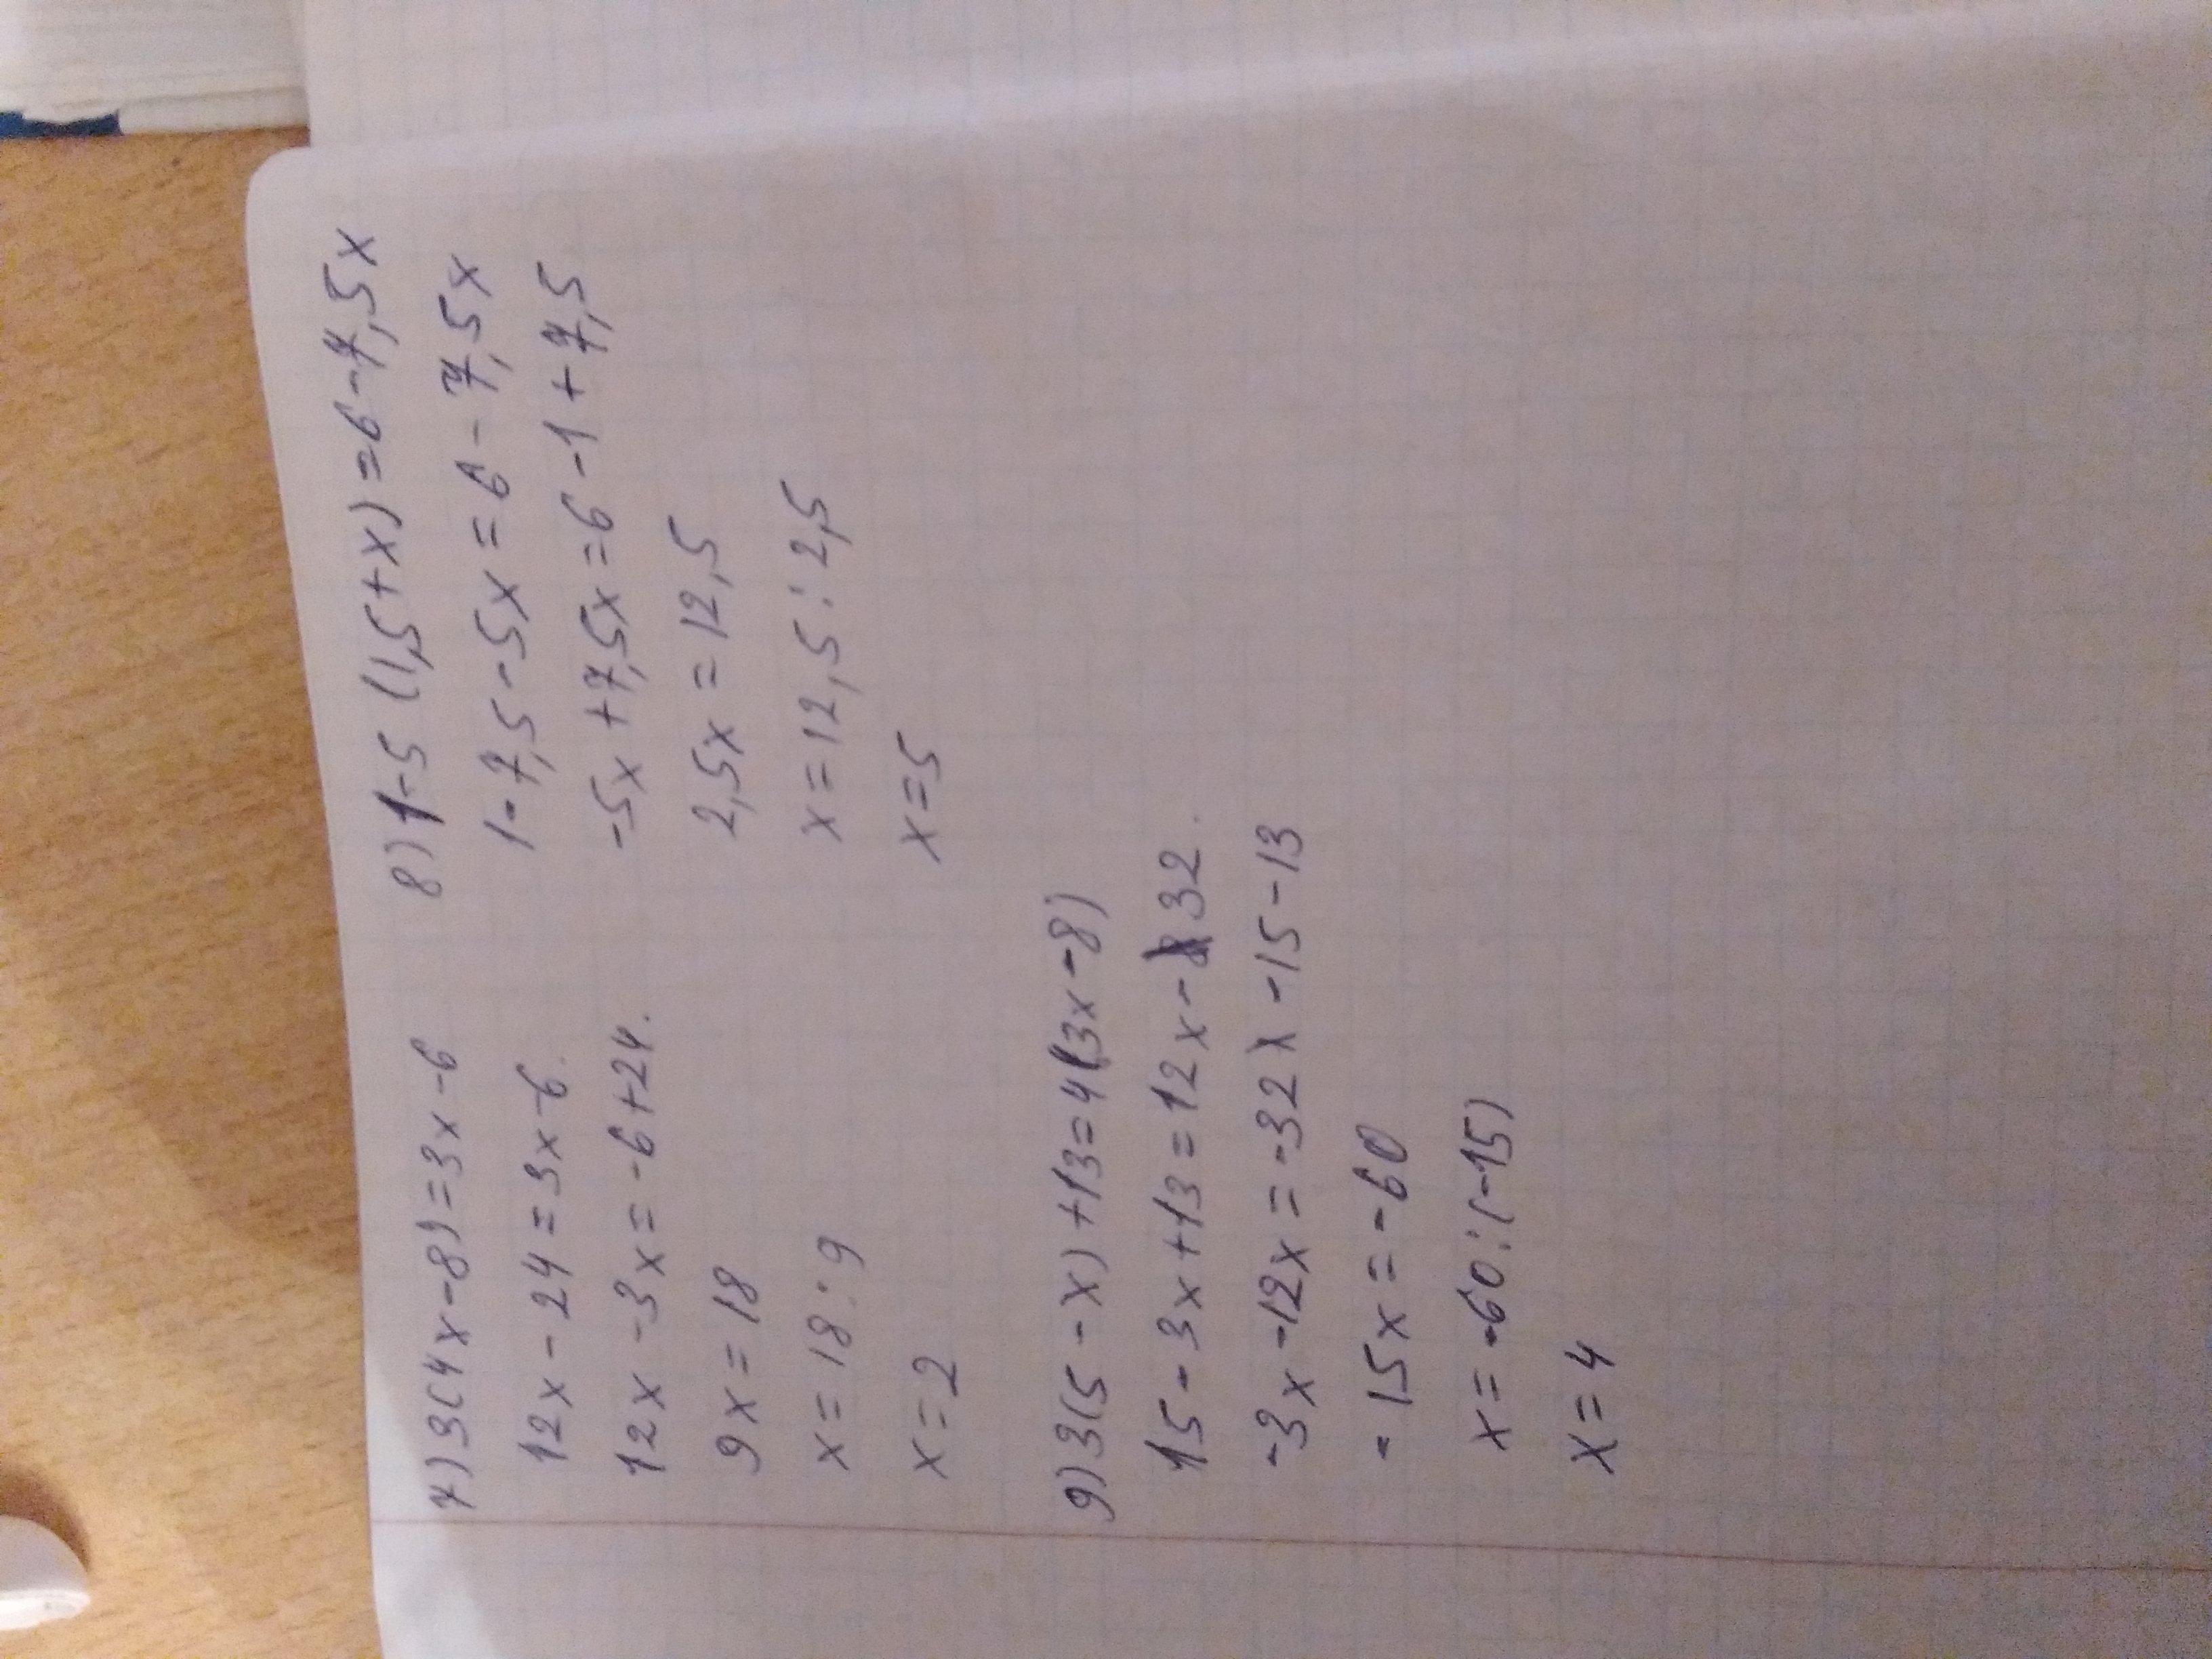 7) 3(4x-8)=3x-6
12x-24=3x-6.
12x-3x=-6+24.
9x=18
x=18:9
x=2
8) 1-5(1,5+x)=6-7,5x
1-7,5-5x=6-7,5x
-5x+7,5x=6-1+7,5
2,5x=12,5
x=12,5:2,5
x=5
9) 3(5-x)+13=4(3x-8)
15-3x+13=12x-32.
-3x-12x=-32-15-13
-15x=-60
x=-60:(-15)
x=4